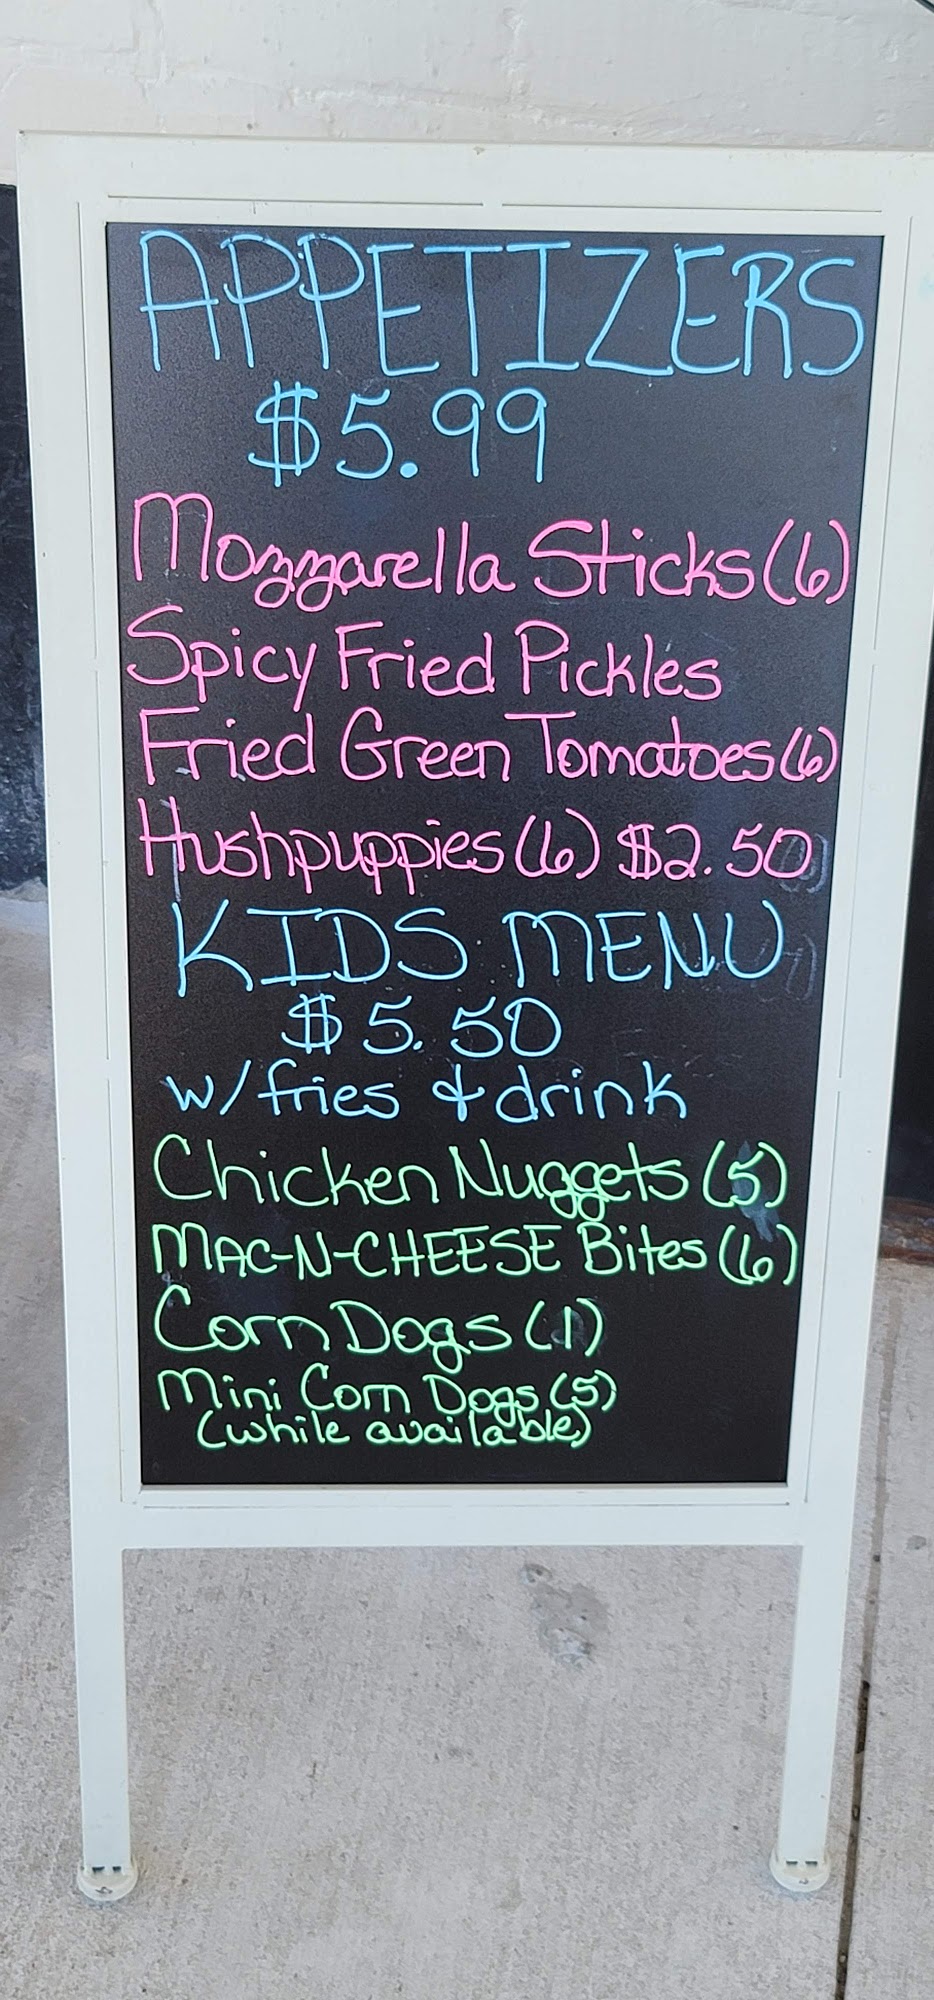 APPETIZERS
$5.99
Mozzarella Sticks (6)
Spicy Fried Pickles
Fried Green Tomatoes (6)
Hushpuppies (6) $2.50
KIDS MENU
$5.50
w/ fries & drink
Chicken Nuggets (5)
MAC-N-CHEESE Bites (6)
Corn Dogs (1)
Mini Corn Dogs (5)
(while available)